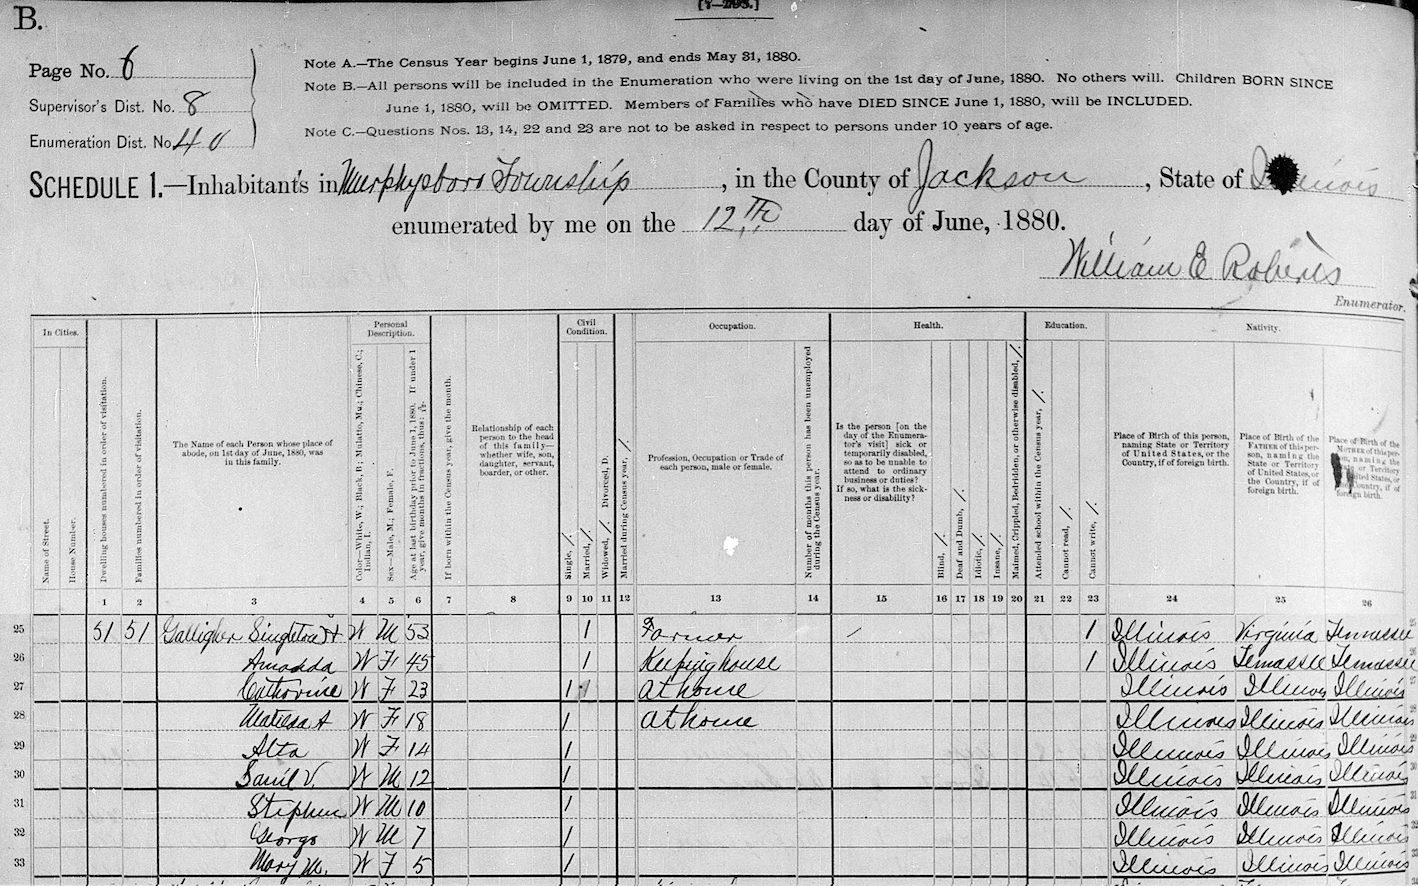 B.
[7-293.]
Page No. 6
Supervisor's Dist. No. 8
Enumeration Dist. No. 40
Note A.—The Census Year begins June 1, 1879, and ends May 31, 1880.
Note B.—All persons will be included in the Enumeration who were living on the 1st day of June, 1880. No others will. Children BORN SINCE
June 1, 1880, will be OMITTED. Members of Families who have DIED SINCE June 1, 1880, will be INCLUDED.
Note C.—Questions Nos. 13, 14, 22 and 23 are not to be asked in respect to persons under 10 years of age.
SCHEDULE 1.—Inhabitants in Murphysboro Township, in the County of Jackson, State of Illinois
enumerated by me on the 12TH day of June, 1880.
William E Roberts
Enumerator.
In Cities.
Name of Street.
House Number.
Dwelling houses numbered in order of visitation.
Families numbered in order of visitation.
The Name of each Person whose place of
abode, on 1st day of June, 1880, was
in this family.
Personal
Description.
Color—White, W.; Black, B.; Mulatto, Mu.; Chinese, C.;
Indian, I.
Sex—Male, M.; Female, F.
Age at last birthday prior to June 1, 1880. If under 1
year, give months in fractions, thus: 3/12.
If born within the Census year, give the month.
Relationship of each
person to the head
of this family—
whether wife, son,
daughter, servant,
boarder, or other.
Civil
Condition.
Single, /.
Married, /.
Widowed, /. Divorced, D.
Married during Census year, /.
Occupation.
Profession, Occupation or Trade of
each person, male or female.
Number of months this person has been unemployed
during the Census year.
Health.
Is the person [on the
day of the Enumera-
tor's visit] sick or
temporarily disabled,
so as to be unable to
attend to ordinary
business or duties?
If so, what is the sick-
ness or disability?
Blind, /.
Deaf and Dumb, /.
Idiotic, /.
Insane, /.
Maimed, Crippled, Bedridden, or otherwise disabled, /.
Education.
Attended school within the Census year, /.
Cannot read, /.
Cannot write, /.
Nativity.
Place of Birth of this person,
naming State or Territory
of United States, or the
Country, if of foreign birth.
Place of Birth of the
FATHER of this per-
son, naming the
State or Territory
of United States, or
the Country, if of
foreign birth.
Place of Birth of the
MOTHER of this per-
son, naming the
State or Territory
of United States, or
the Country, if of
foreign birth.
1 2 3 4 5 6 7 8 9 10 11 12 13 14 15 16 17 18 19 20 21 22 23 24 25 26
25 51 51 Galligher Singleton H W M 53 1 Farmer / 1 Illinois Virginia Tennessee
26 Amanda W F 45 1 Keeping house 1 Illinois Tennessee Tennessee
27 Catherine W F 23 1 At home Illinois Illinois Illinois
28 Matilda A W F 18 1 At home Illinois Illinois Illinois
29 Alta W F 14 1 Illinois Illinois Illinois
30 V. W M 12 1 Illinois Illinois Illinois
31 Stephen W M 10 1 Illinois Illinois Illinois
32 George W M 7 1 Illinois Illinois Illinois
33 Mary M. W F 5 1 Illinois Illinois Illinois